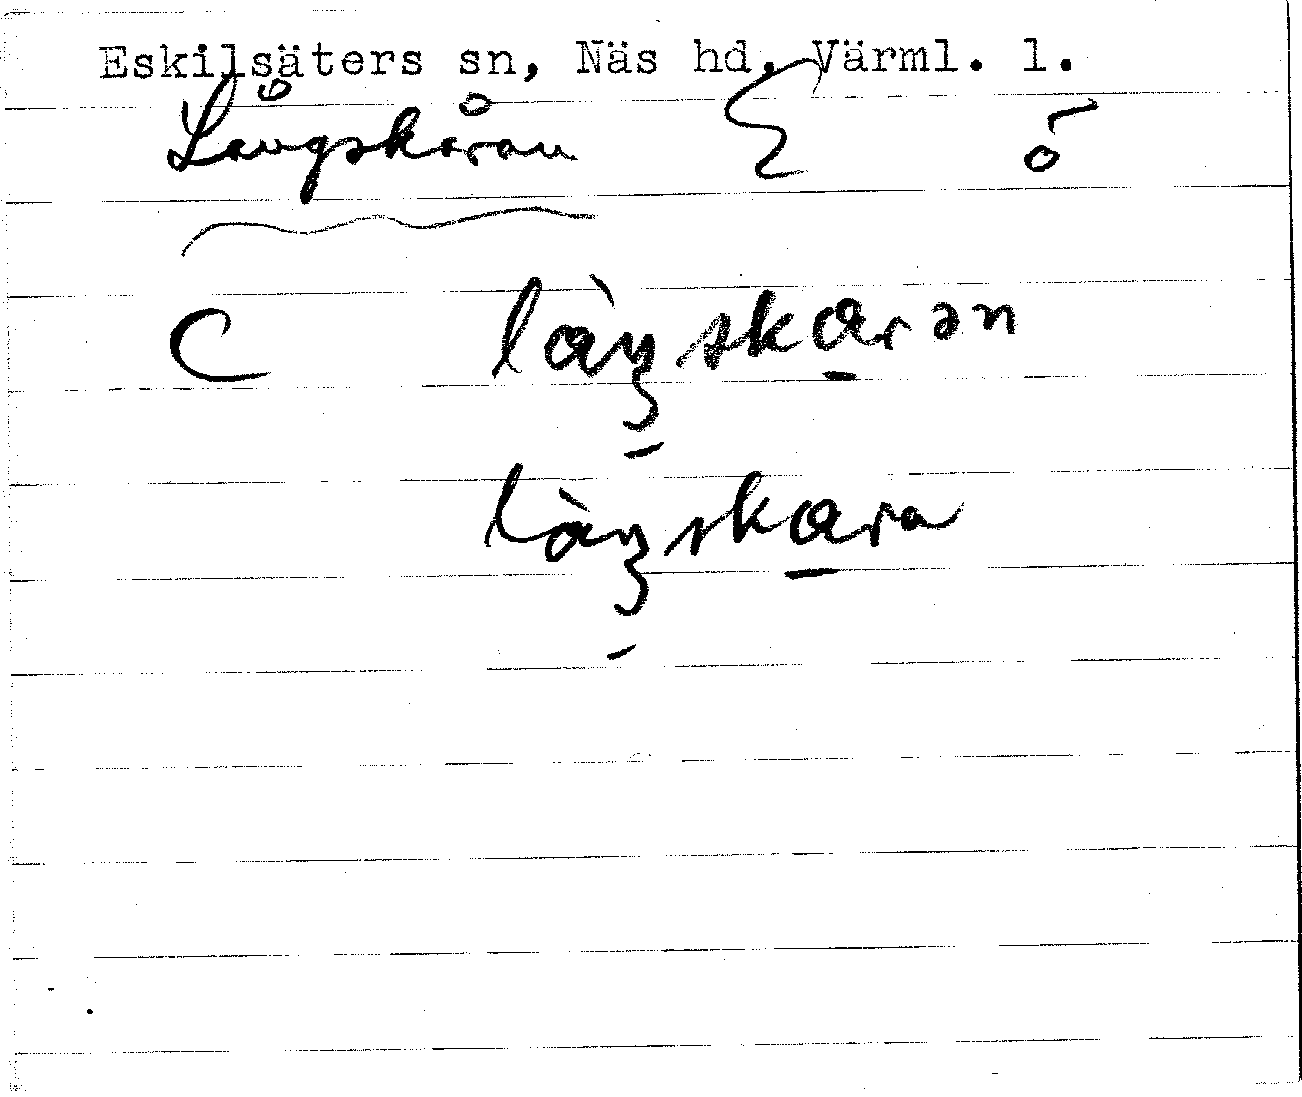 Eskilsäters sn, Näs hd. Värml. l.
Långskåran ö
C låŋskaran
låŋskara